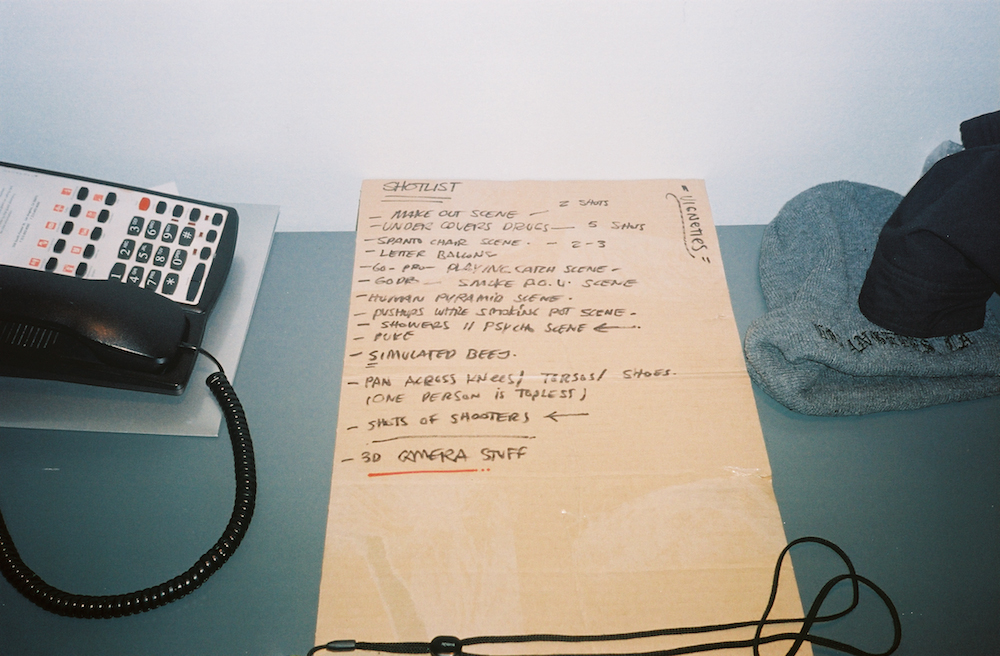 SHOTLIST
= VIGNETTES =
- MAKE OUT SCENE - 2 SHOTS
- UNDER COVERS DRUGS - 5 SHOTS
- CHAIR SCENE. - 2-3
- LETTER
- GO-PRO- PLAYING CATCH SCENE -
- SMOKE P.O.V. SCENE
- HUMAN PYRAMID SCENE.
- PUSHUPS WHILE SMOKING POT SCENE.
- SHOWERS // PSYCHO SCENE ←
- PUKE
- SIMULATED
- PAN ACROSS KNEES/ TORSOS/ SHOES.
(ONE PERSON IS TOPLESS)
- SHOTS OF SHOOTERS ←
- 3D CAMERA STUFF
1 2 3
4 5 6
7 8 9
* 0 #